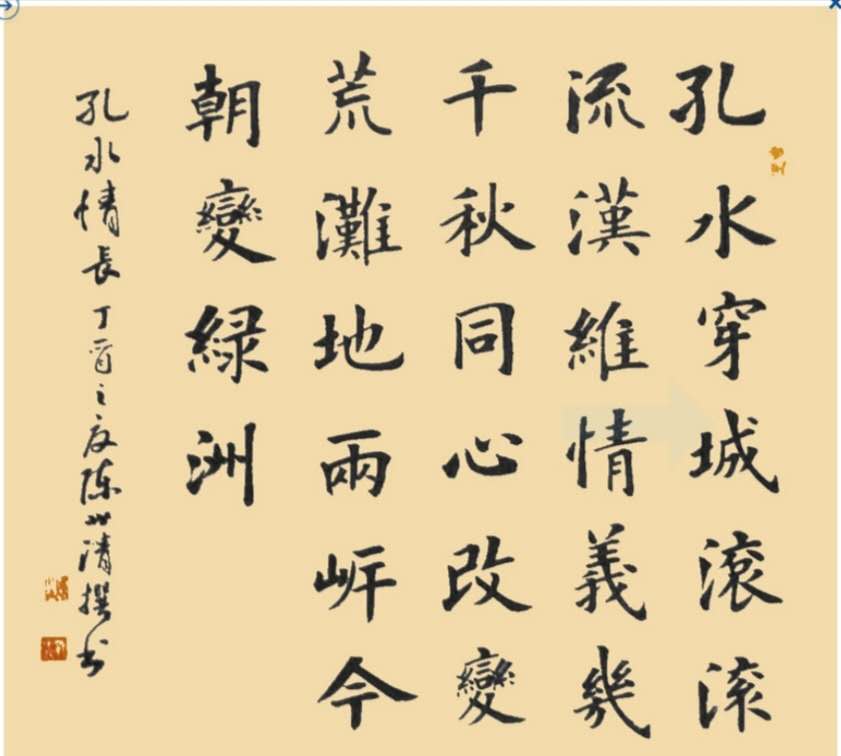 孔水穿城滚滚
流漢維情義幾
千秋同心改變
荒灘地兩岍今
朝變緑洲
孔水情長 丁酉之夏陈世清撰书